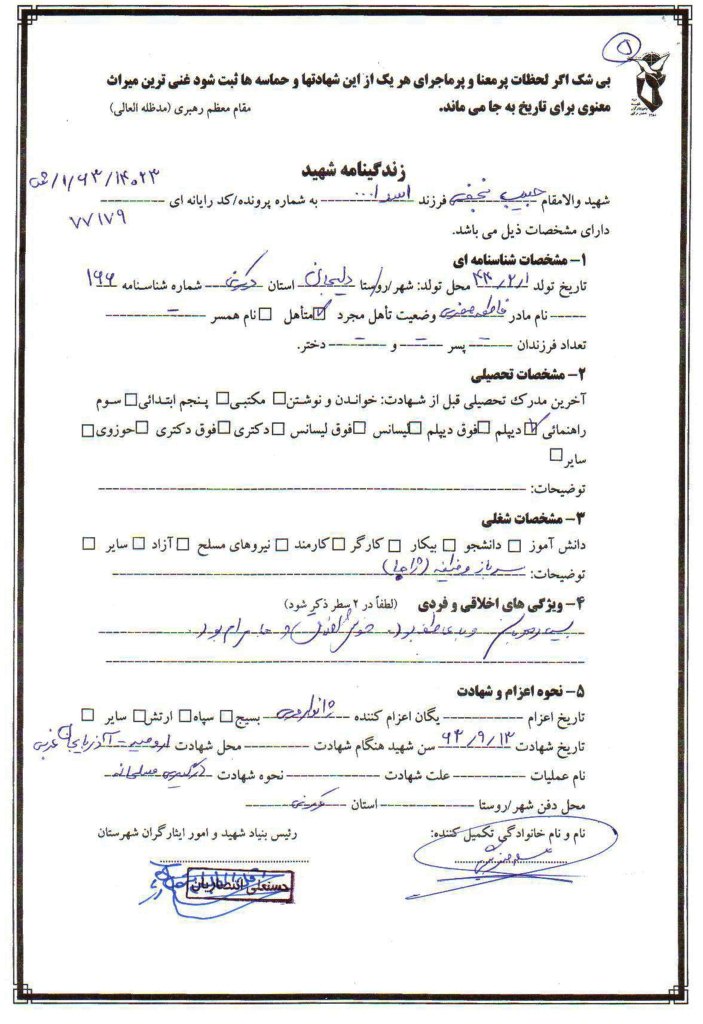 بی شک اگر لحظات پرمعنا و پرماجرای هر یک از این شهادتها و حماسه ها ثبت شود غنی ترین میراث
معنوی برای تاریخ به جا می ماند.
مقام معظم رهبری (مدظله العالی)
زندگینامه شهید
۱۴۰۲۳/۱/۶۳/ش
شهید والامقام حبیب نجفی فرزند اسدا... به شماره پرونده/کد رایانه ای
۷۷۱۷۹
دارای مشخصات ذیل می باشد.
۱- مشخصات شناسنامه ای
تاریخ تولد ۴۴/۲/۱ محل تولد: شهر/روستا دلیجان استان مرکزی شماره شناسنامه ۱۹۶
نام مادر فاطمه صفری وضعیت تأهل مجرد ☑ متأهل □ نام همسر -
تعداد فرزندان - پسر - و - دختر.
۲- مشخصات تحصیلی
آخرین مدرک تحصیلی قبل از شهادت: خواندن و نوشتن □ مکتبی □ پنجم ابتدائی □ سوم
راهنمائی ☑ دیپلم □ فوق دیپلم □ لیسانس □ فوق لیسانس □ دکتری □ فوق دکتری □ حوزوی □
سایر □
توضیحات:
۳- مشخصات شغلی
دانش آموز □ دانشجو □ بیکار □ کارگر □ کارمند □ نیروهای مسلح □ آزاد □ سایر □
توضیحات: سرباز وظیفه (ژاجا)
۴- ویژگی های اخلاقی و فردی (لطفاً در ۲ سطر ذکر شود)
بسیار مهربان و با عاطفه بود. خوش اخلاق و با مرام بود.
۵- نحوه اعزام و شهادت
تاریخ اعزام یگان اعزام کننده ژاندارمری بسیج □ سپاه □ ارتش □ سایر □
تاریخ شهادت ۶۳/۹/۱۳ سن شهید هنگام شهادت محل شهادت ارومیه - آذربایجان غربی
نام عملیات علت شهادت نحوه شهادت درگیری مسلحانه
محل دفن شهر/روستا استان مرکزی
نام و نام خانوادگی تکمیل کننده:
رئیس بنیاد شهید و امور ایثارگران شهرستان